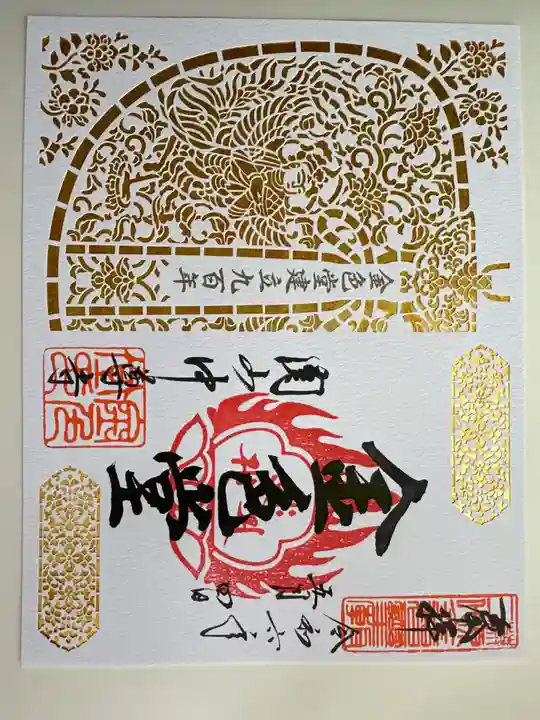 金色堂建立九百年
奉拝
令和六年
五月四日
金色堂
関山中尊寺